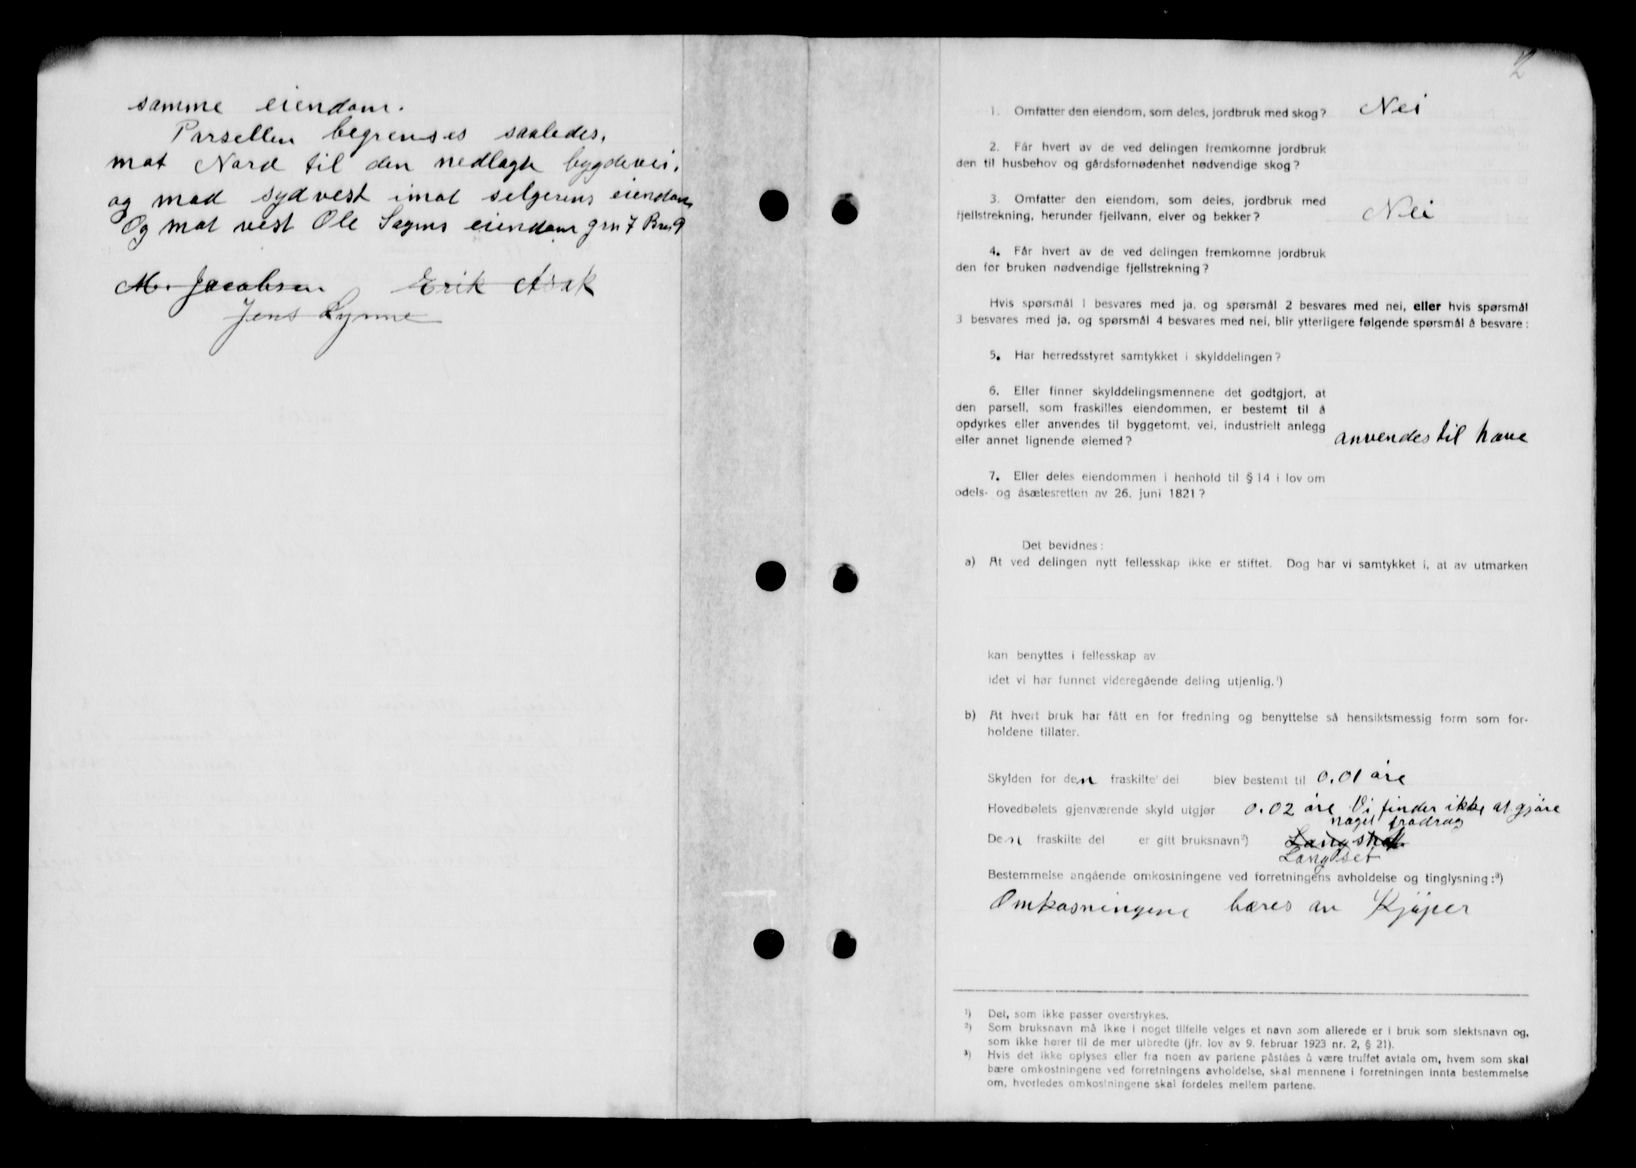 samme eiendom.
Parsellen begrenses saaledes,
mot Nord til den nedlagte bygdevei,
og mod sydvest imot selgerens eiendom
Og mot vest Ole Sagens eiendom grn 7 Brn 9
M. Jacobsen Erik Asak
Jens Rynne
2
1. Omfatter den eiendom, som deles, jordbruk med skog? Nei
2. Får hvert av de ved delingen fremkomne jordbruk
den til husbehov og gårdsfornødenhet nødvendige skog?
3. Omfatter den eiendom, som deles, jordbruk med
fjellstrekning, herunder fjellvann, elver og bekker? Nei
4. Får hvert av de ved delingen fremkomne jordbruk
den for bruken nødvendige fjellstrekning?
Hvis spørsmål 1 besvares med ja, og spørsmål 2 besvares med nei, eller hvis spørsmål
3 besvares med ja, og spørsmål 4 besvares med nei, blir ytterligere følgende spørsmål å besvare:
5. Har herredsstyret samtykket i skylddelingen?
6. Eller finner skylddelingsmennene det godtgjort, at
den parsell, som fraskilles eiendommen, er bestemt til å
opdyrkes eller anvendes til byggetomt, vei, industrielt anlegg
eller annet lignende øiemed? anvendes til have
7. Eller deles eiendommen i henhold til § 14 i lov om
odels- og åsætesretten av 26. juni 1821?
Det bevidnes:
a) At ved delingen nytt fellesskap ikke er stiftet. Dog har vi samtykket i, at av utmarken
kan benyttes i fellesskap av
idet vi har funnet videregående deling utjenlig.¹)
b) At hvert bruk har fått en for fredning og benyttelse så hensiktsmessig form som for-
holdene tillater.
Skylden for den fraskilte del blev bestemt til 0,01 åre
Hovedbølets gjenværende skyld utgjør 0.02 åre Vi finder ikke at gjøre
noget fradrag
Den fraskilte del er gitt bruksnavn²)
Langset
Bestemmelse angående omkostningene ved forretningens avholdelse og tinglysning:³)
Omkosningene bæres av Kjøper
¹) Det, som ikke passer overstrykes.
²) Som bruksnavn må ikke i noget tilfelle velges et navn som allerede er i bruk som slektsnavn og,
som ikke hører til de mer utbredte (jfr. lov av 9. februar 1923 nr. 2, § 21).
³) Hvis det ikke oplyses eller fra noen av partene påståes å være truffet avtale om, hvem som skal
bære omkostningene ved forretningens avholdelse, skal mennene i forretningen innta bestemmelse
om, hvorledes omkostningene skal fordeles mellem partene.